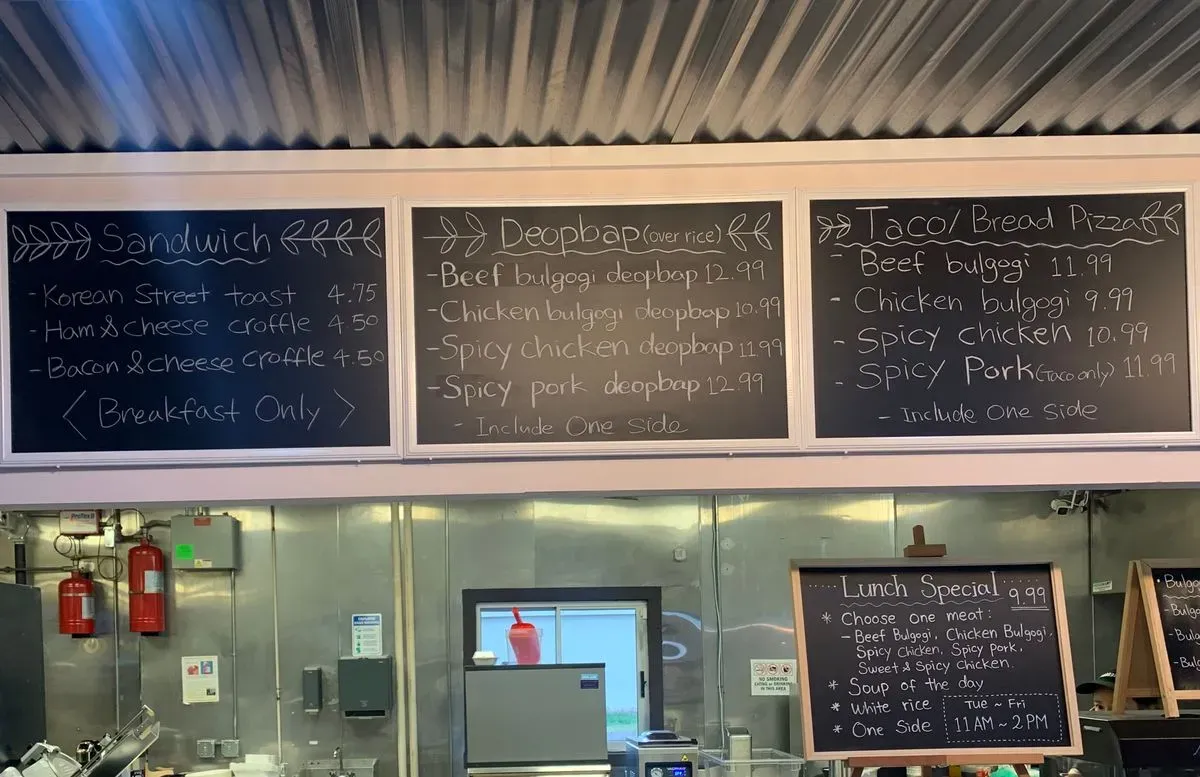 Sandwich
- Korean Street toast 4.75
- Ham & cheese croffle 4.50
- Bacon & cheese croffle 4.50
< Breakfast Only >
Deopbap (over rice)
- Beef bulgogi deopbap 12.99
- Chicken bulgogi deopbap 10.99
- Spicy chicken deopbap 11.99
- Spicy pork deopbap 12.99
- Include One Side
Taco/ Bread Pizza
- Beef bulgogi 11.99
- Chicken bulgogi 9.99
- Spicy chicken 10.99
- Spicy Pork (Taco only) 11.99
- Include One Side
Lunch Special 9.99
* Choose one meat:
- Beef Bulgogi, Chicken Bulgogi,
Spicy chicken, Spicy pork,
Sweet & Spicy Chicken.
* Soup of the day
* White rice
* One Side
Tue ~ Fri
11 AM ~ 2 PM
NO SMOKING
EATING or DRINKING
IN THIS AREA